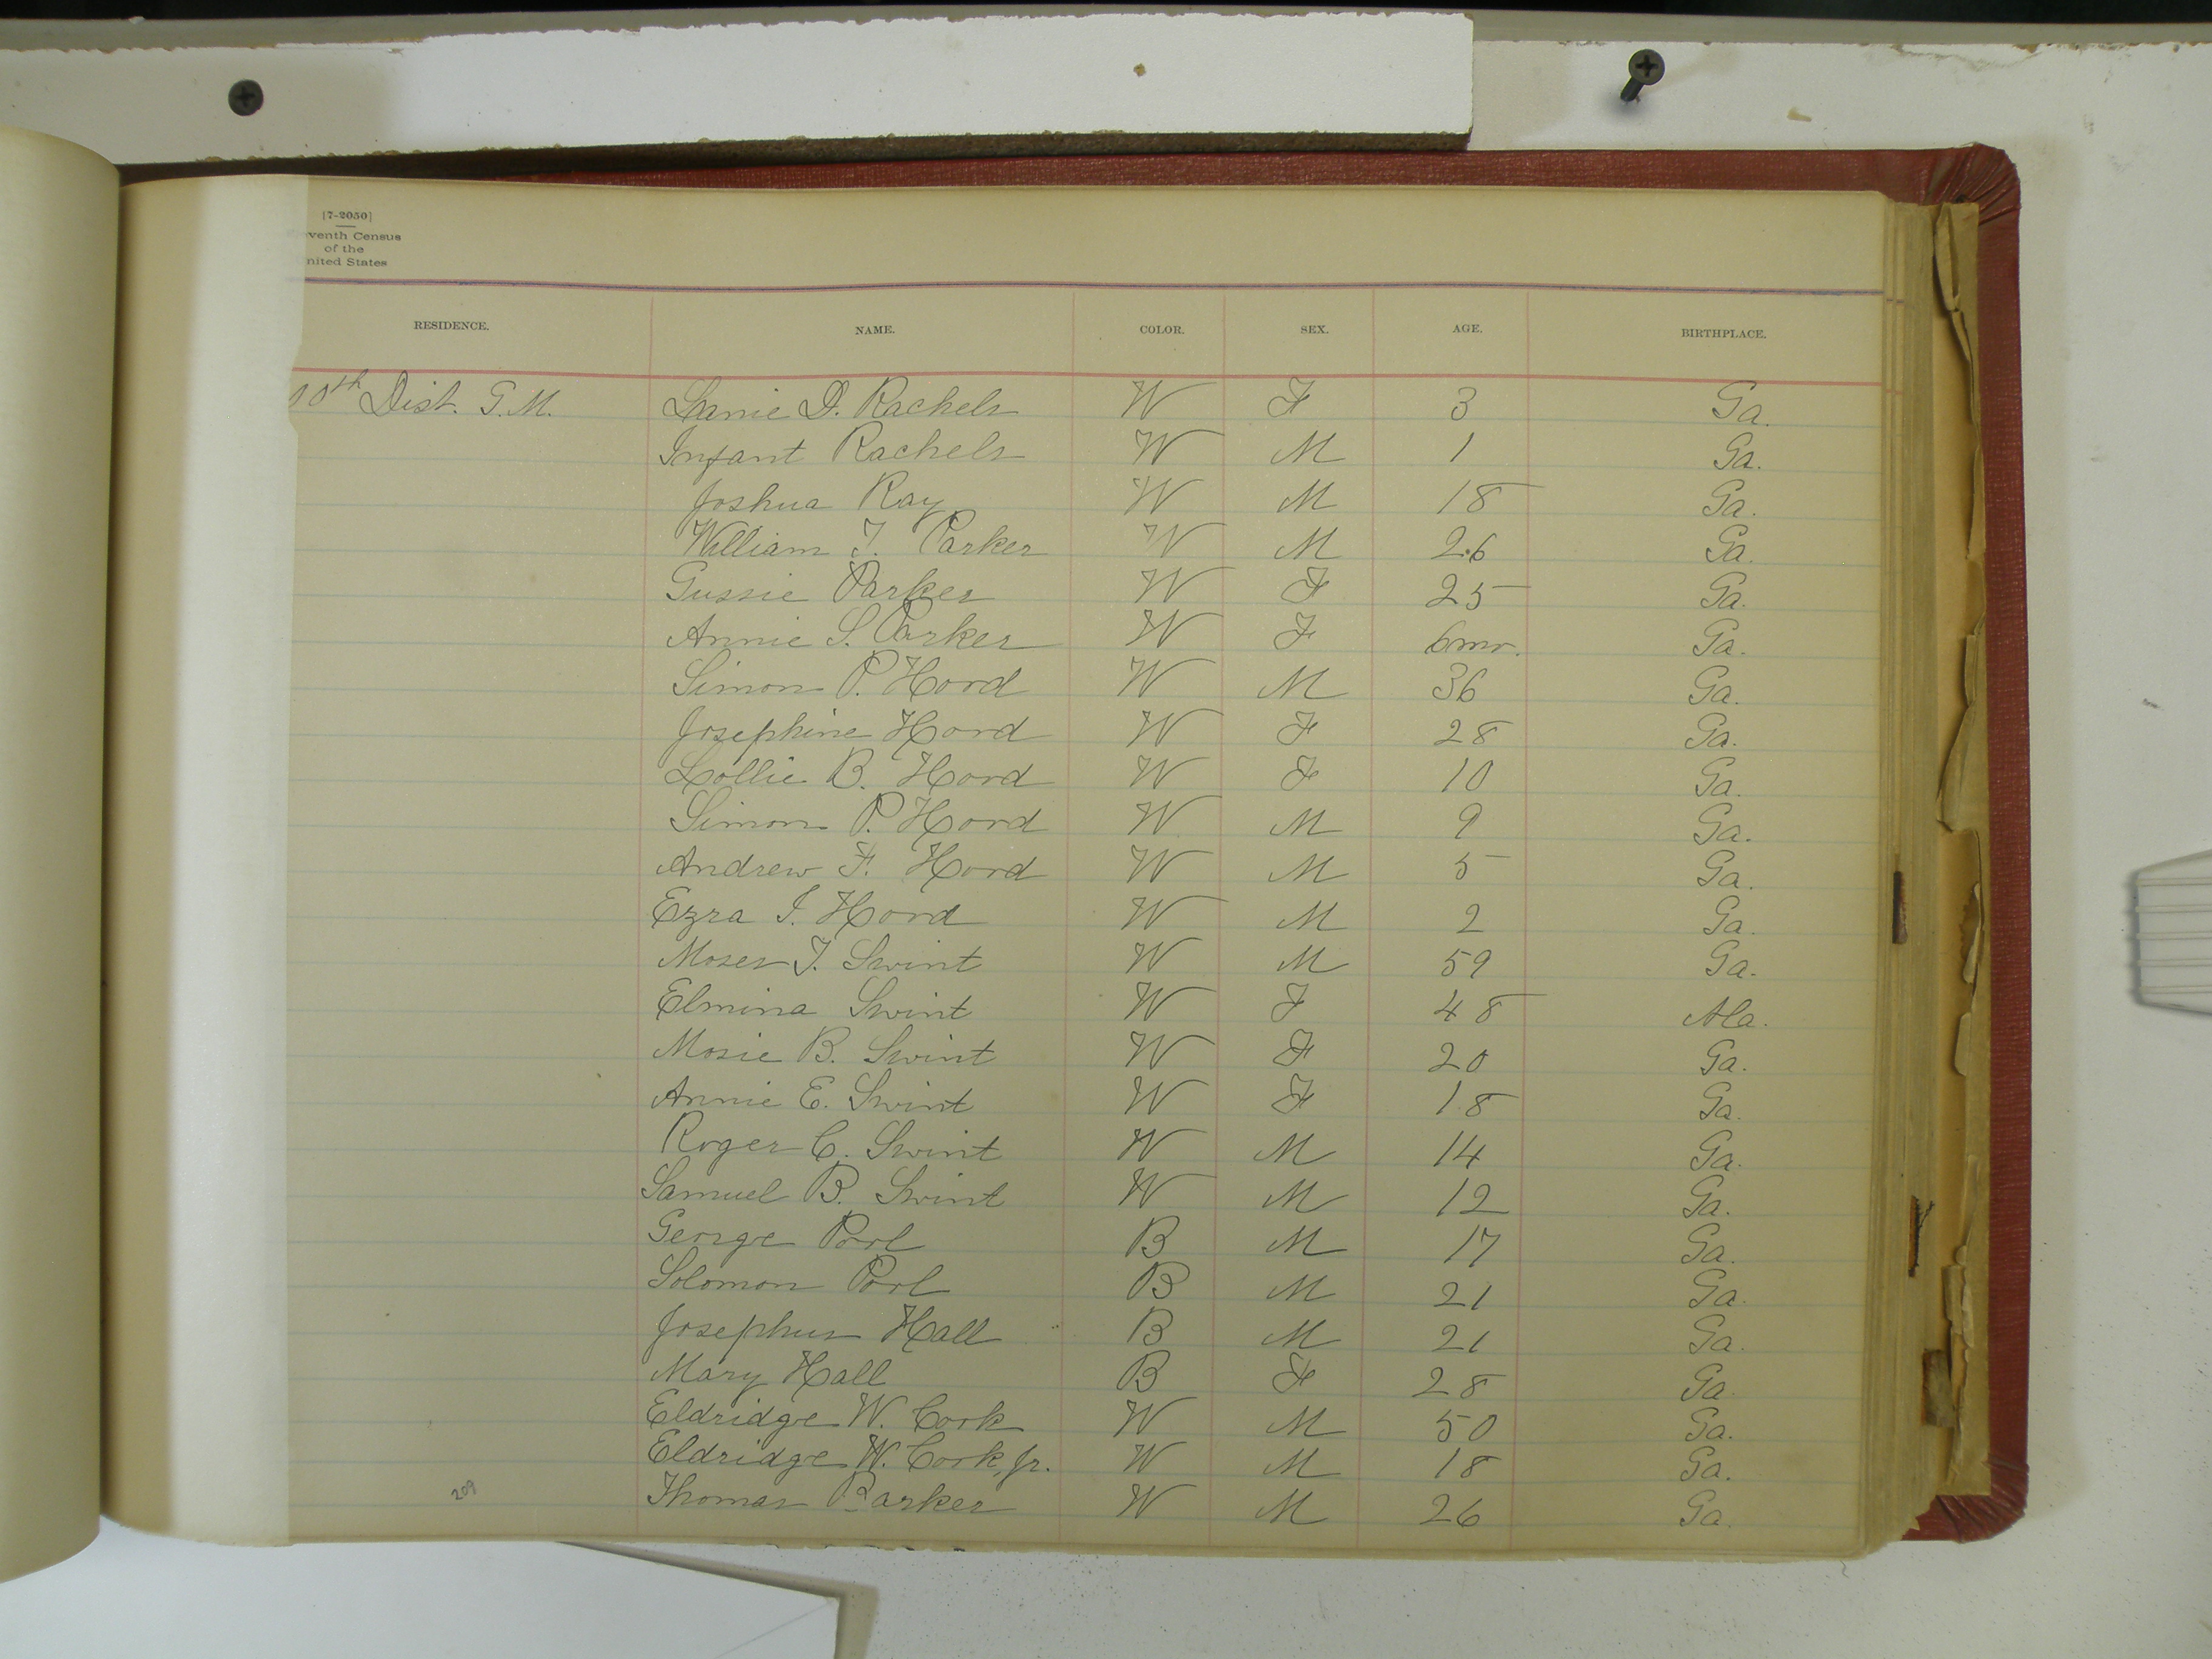 [7-2050]
venth Census
of the
nited States
RESIDENCE. NAME. COLOR. SEX. AGE. BIRTHPLACE.
10th Dist. G.M. Lanie D. Rachels W F 3 Ga.
Infant Rachels W M 1 Ga.
Joshua Ray W M 18 Ga.
William T. Parker W M 26 Ga.
Gussie Parker W F 25 Ga.
Annie S. Parker W F 6mo. Ga.
Simon P. Hood W M 36 Ga.
Josephine Hood W F 28 Ga.
Lollie B. Hood W F 10 Ga.
Simon P. Hood W M 9 Ga.
Andrew F. Hood W M 5 Ga.
Ezra I. Hood W M 2 Ga.
Moses T. Swint W M 59 Ga.
Elmina Swint W F 48 Ala.
Mosie B. Swint W F 20 Ga.
Annie E. Swint W F 18 Ga.
Roger C. Swint W M 14 Ga.
Samuel B. Swint W M 12 Ga.
George Pool B M 17 Ga.
Solomon Pool B M 21 Ga.
Josephus Hall B M 21 Ga.
Mary Hall B F 28 Ga.
Eldridge W. Cook W M 50 Ga.
Eldridge W. Cook, Jr. W M 18 Ga.
Thomas Barker W M 26 Ga.
209